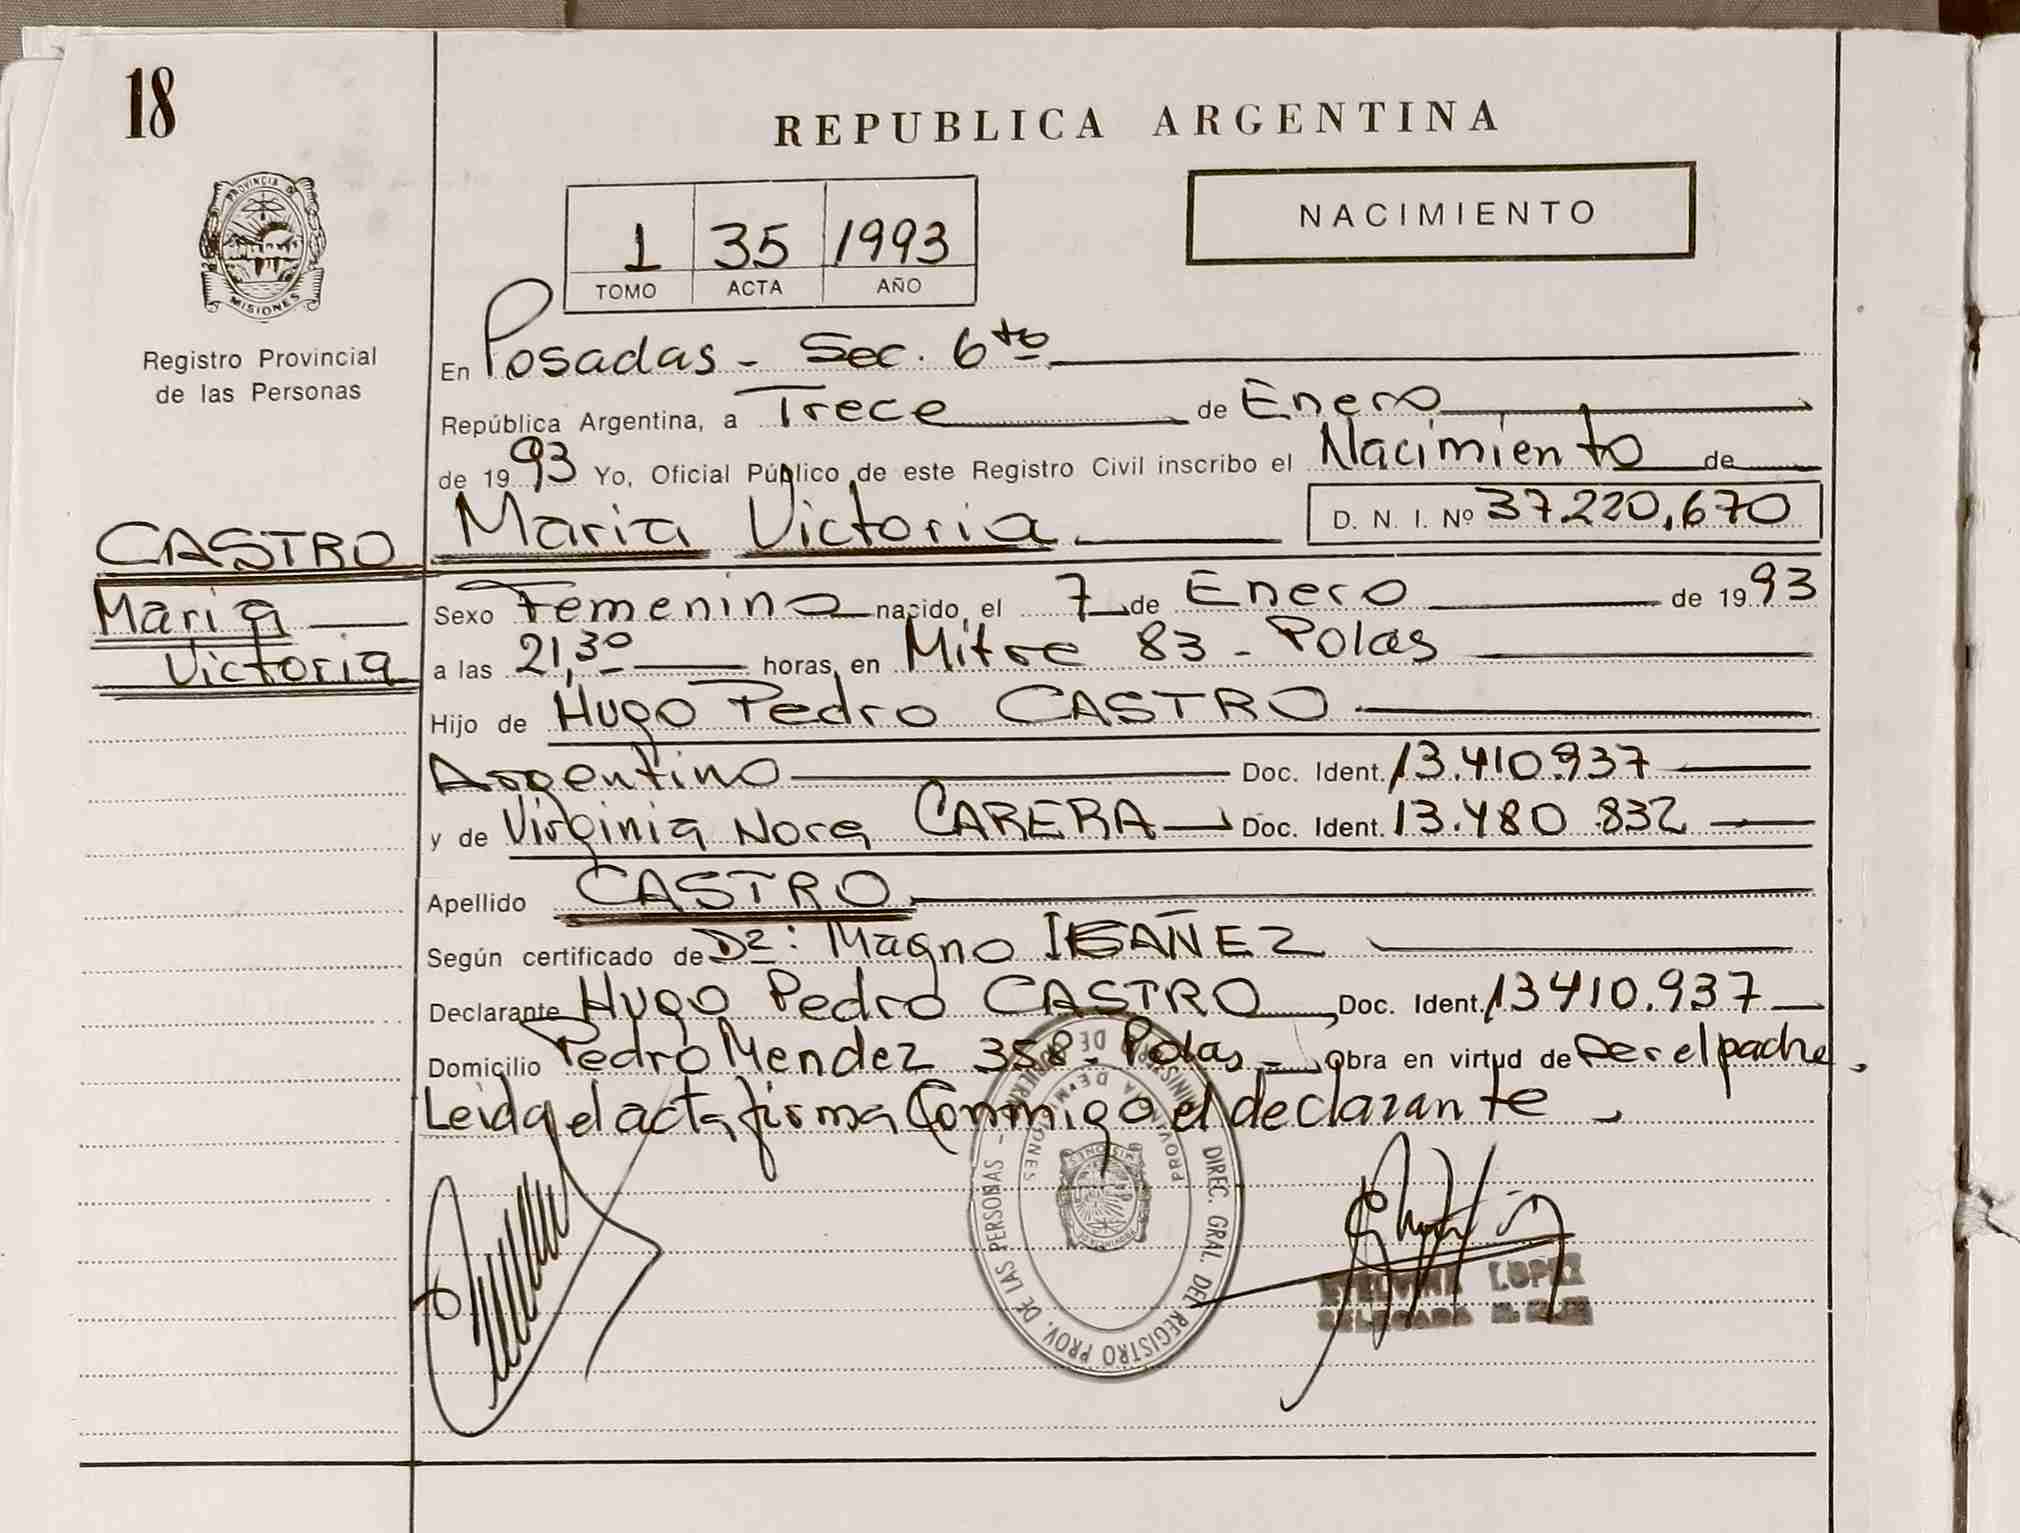 18
REPUBLICA ARGENTINA
NACIMIENTO
1 35 1993
TOMO ACTA AÑO
PROVINCIA D MISIONES
Registro Provincial
de las Personas
En Posadas - Sec. 6to
República Argentina, a Trece de Enero
de 1993 Yo, Oficial Público de este Registro Civil inscribo el Nacimiento de
Maria Victoria D. N. I. Nº 37.220,670
CASTRO
Maria
Victoria
Sexo Femenino nacido, el 7 de Enero de 1993
a las 21,30 horas, en Mitre 83 - Polas
Hijo de Hugo Pedro CASTRO
Argentino Doc. Ident. 13.410.937
y de Virginia Nora CARERA Doc. Ident. 13.480.832
Apellido CASTRO
Según certificado de Dr: Magno IBAÑEZ
Declarante Hugo Pedro CASTRO Doc. Ident. 13410.937
Domicilio Pedro Mendez 358 - Polas - Obra en virtud de ser el padre.
Leida el acta firma Conmigo el declarante
DIREC. GRAL. DEL REGISTRO PROV. DE LAS PERSONAS -
PROVINCIA DE MISIONES
LOPEZ